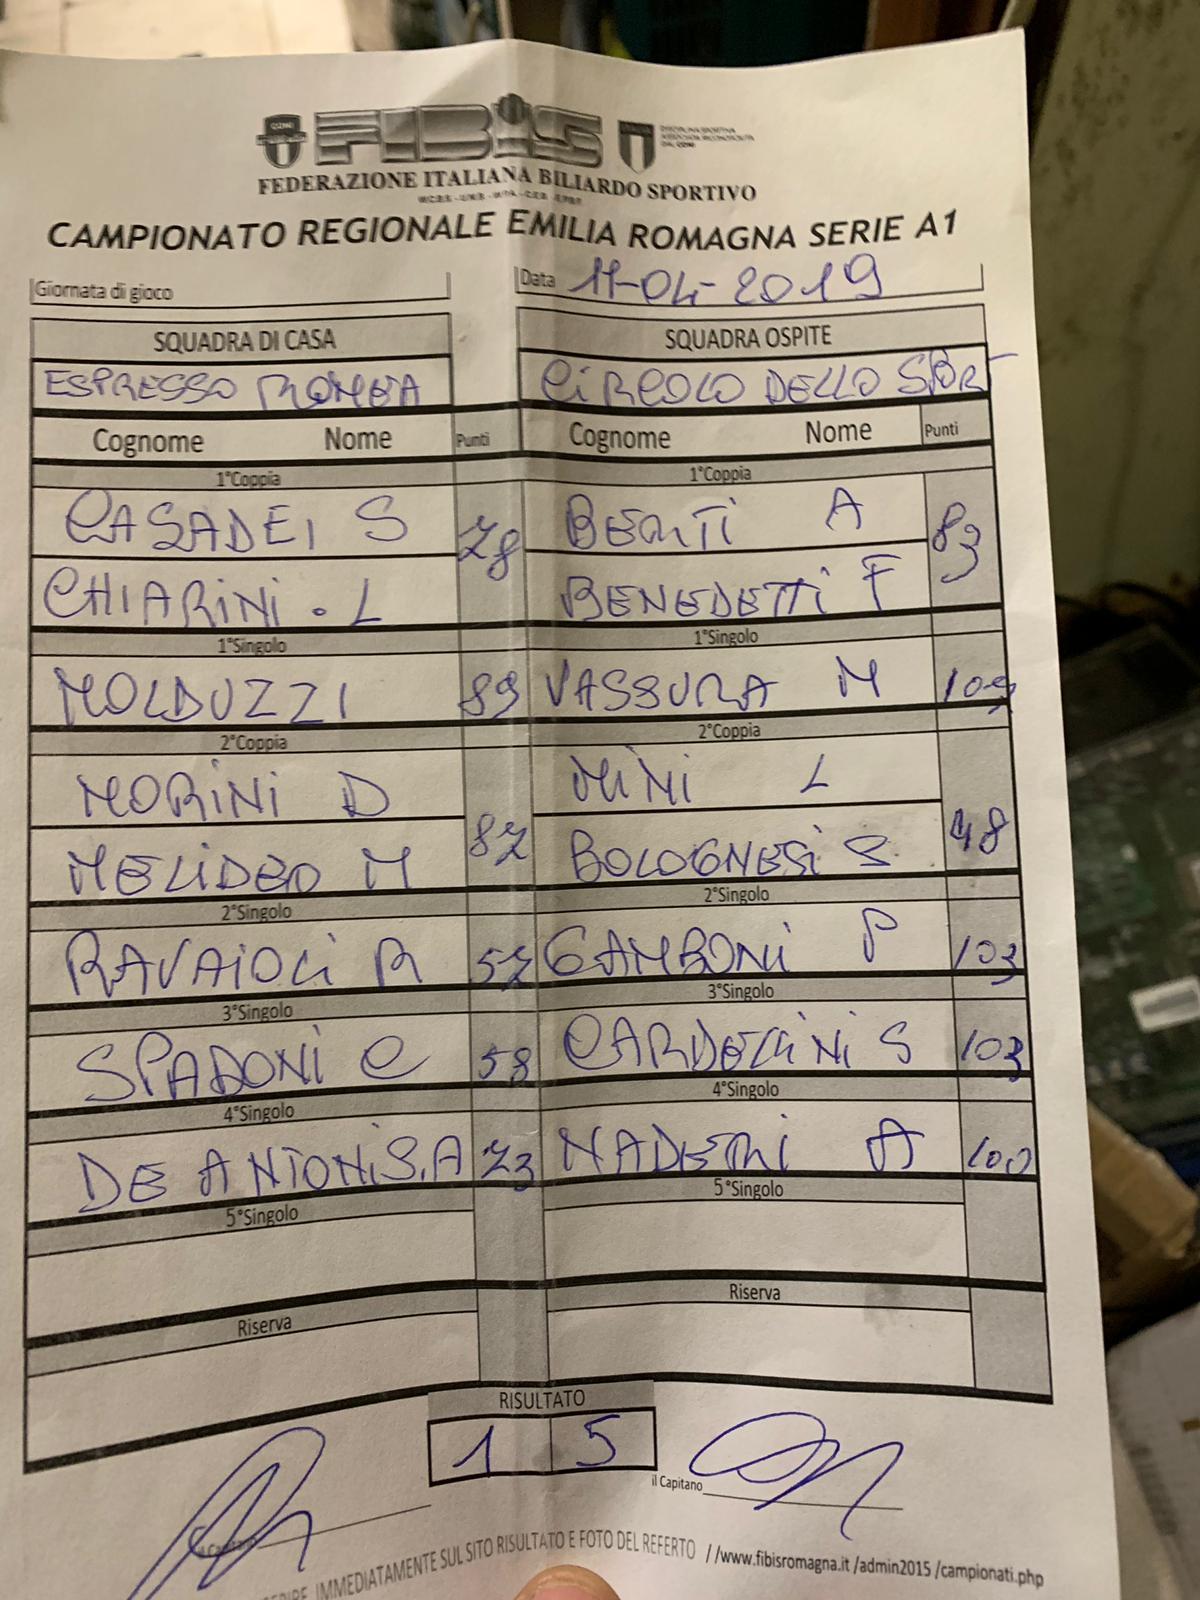 FIBiS
FEDERAZIONE ITALIANA BILIARDO SPORTIVO
CAMPIONATO REGIONALE EMILIA ROMAGNA SERIE A1
Giornata di gioco Data 11-04-2019
SQUADRA DI CASA SQUADRA OSPITE
ESPRESSO ROMEA CiRCOLO DELLO SPORT
Cognome Nome Punti Cognome Nome Punti
1°Coppia 1°Coppia
CASADEI S 78 BERTI A 83
CHIARINI . L BENEDETTi F
1°Singolo 1°Singolo
MOLDUZZI 89 VASSURA M 109
2°Coppia 2°Coppia
MORiNi D 87 MiNi L 48
MELiDEO M BOLOGNESi S
2°Singolo 2°Singolo
RAVAiOLi R 57 GAMBONi P 103
3°Singolo 3°Singolo
SPADONi C 58 CARDELLiNi S 103
4°Singolo 4°Singolo
DE ANTONiS.A 73 NADERi A 100
5°Singolo 5°Singolo
Riserva Riserva
RISULTATO
1 5
il Capitano il Capitano
IMMEDIATAMENTE SUL SITO RISULTATO E FOTO DEL REFERTO //www.fibisromagna.it /admin2015 /campionati.php